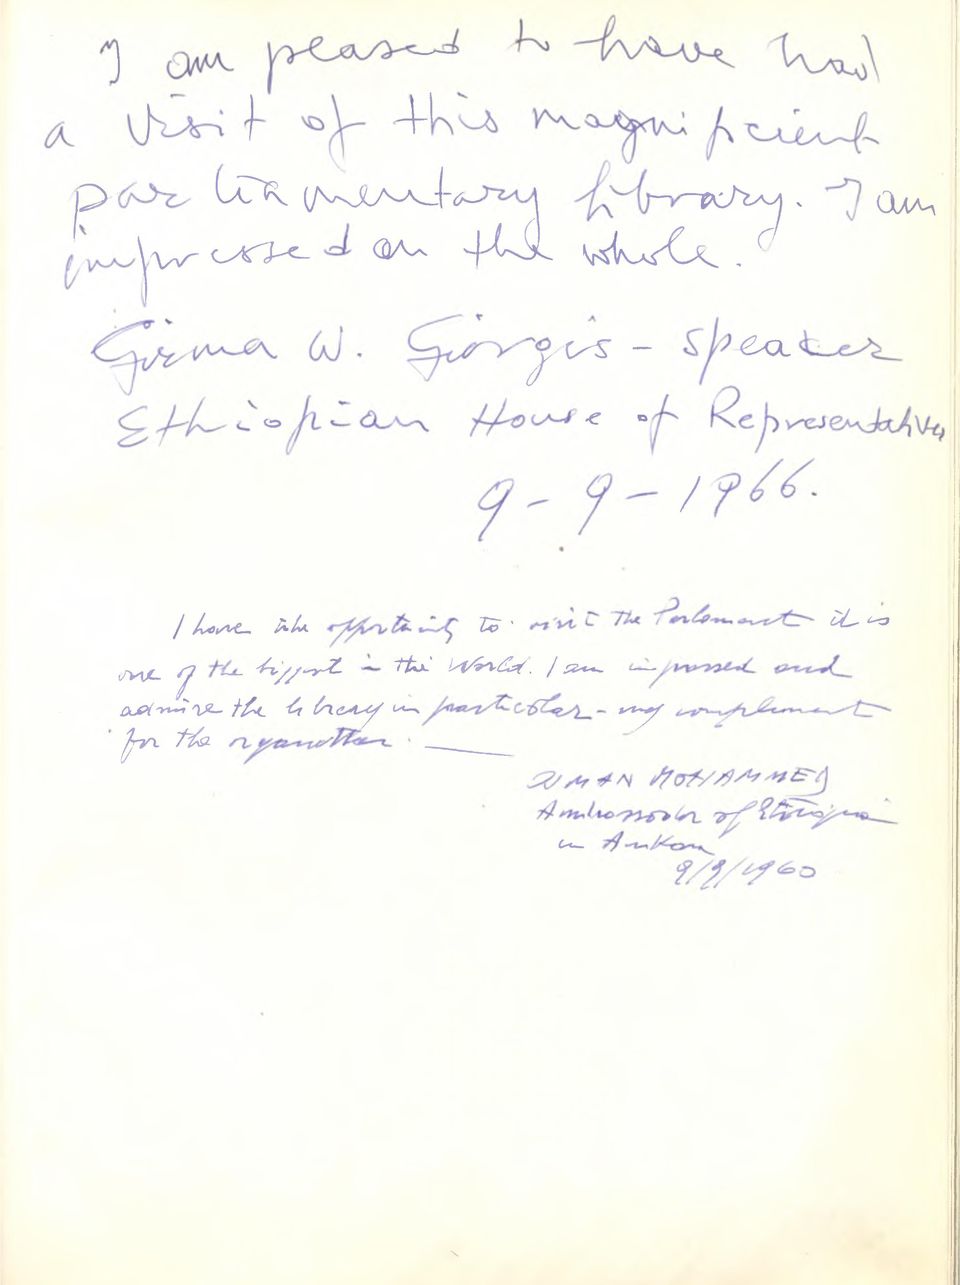 I am pleased to have had
a visit of this magnificient
parliamentary library. I am
impressed on the whole.
Girma W. Giorgis - speaker
Ethiopian House of Representatives
9 - 9 - 1966.
I have the opportunity to visit the Parlement it is
one of the biggest in the World. I am impressed and
admire the library in particolar - my complement
for the
MOHAMMED
Ambassador of Etiopia
in Ankara
9/9/1960